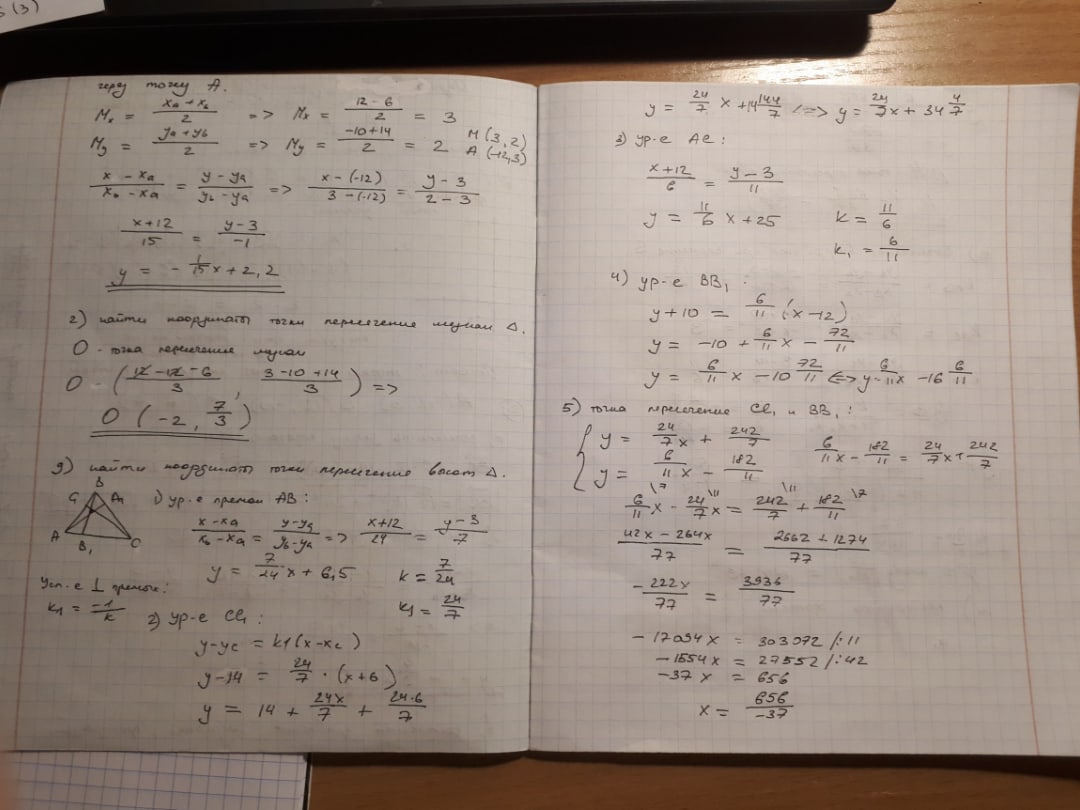 5 (3)
через точку A.
Mx = (xa + xb)/2 => Mx = (12 - 6)/2 = 3
My = (ya + yb)/2 => My = (-10 + 14)/2 = 2 M (3, 2)
A (-12,3)
(x - xa)/(xb - xa) = (y - ya)/(yb - ya) => (x - (-12))/(3 - (-12)) = (y - 3)/(2 - 3)
(x + 12)/15 = (y - 3)/-1
y = - 1/15 x + 2,2
2) найти координаты точки пересечение медиан Δ.
O - точка пересечение медиан
O - ((12 - 12 - 6)/3 , (3 - 10 + 14)/3) =>
O (-2, 7/3)
g) найти координаты точки пересечение высот Δ.
B
C1 A1
A B1 C
1) ур-е прямой AB:
(x - xa)/(xb - xa) = (y - ya)/(yb - ya) => (x + 12)/24 = (y - 3)/-7
y = 7/24 x + 6,5 k = 7/24
Усл-е ⊥ прямых:
k1 = -1/k
k1 = 24/7
2) ур-е CC1:
y - yc = k1 (x - xc)
y - 14 = 24/7 · (x + 6)
y = 14 + 24x/7 + 24·6/7
y = 24/7 x + 14 144/7 <=> y = 24/7 x + 34 4/7
3) ур-е AC:
(x + 12)/6 = (y - 3)/11
y = 11/6 x + 25 k = 11/6
k1 = 6/11
4) ур-е BB1:
y + 10 = 6/11 (x - 12)
y = -10 + 6/11 x - 72/11
y = 6/11 x - 10 72/11 <=> y = 6/11 x - 16 6/11
5) точка пересечение CC1 и BB1:
{ y = 24/7 x + 242/7
y = 6/11 x - 182/11 6/11 x - 182/11 = 24/7 x + 242/7
6/11 \7 x - 24/7 \11 x = 242/7 \11 + 182/11 \7
(42x - 264x)/77 = (2662 + 1274)/77
- 222x/77 = 3936/77
-17094x = 303072 /:11
-1554x = 27552 /:42
-37x = 656
x = 656/-37